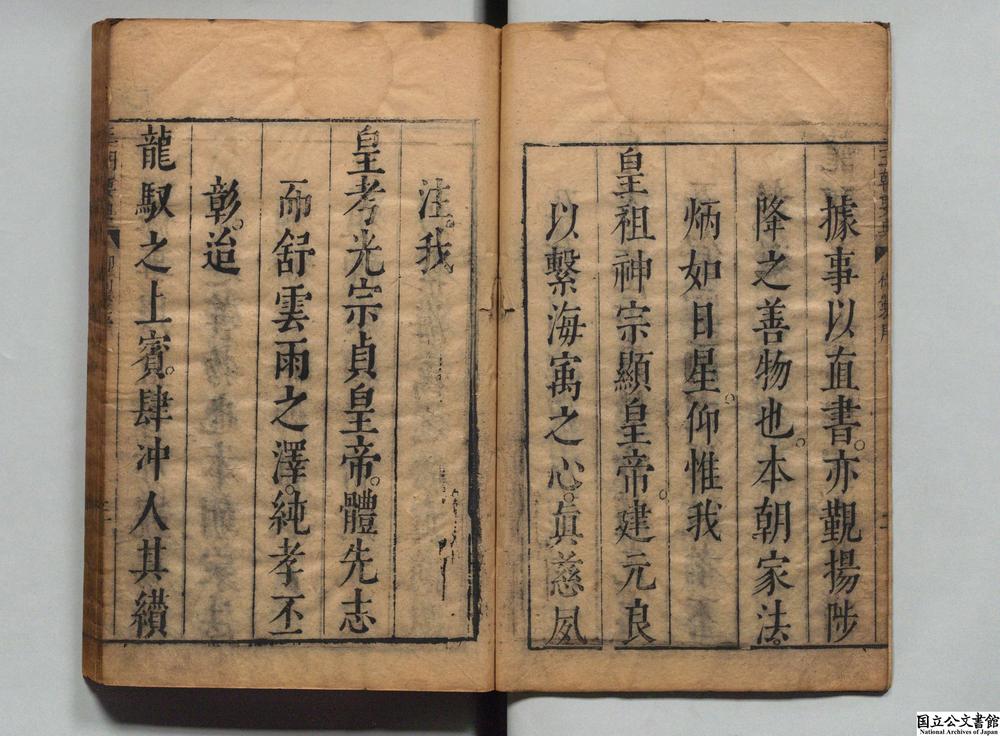 據事以直書。亦覲揚陟
降之善物也。本朝家法。
炳如日星。仰惟我
皇祖神宗顯皇帝。建元良
以繫海寓之心。眞慈夙
注。我
皇考光宗貞皇帝。體先志
而舒雲雨之澤。純孝丕
彰。迨
龍馭之上賓。肆冲人其纉
国立公文書館
National Archives of Japan